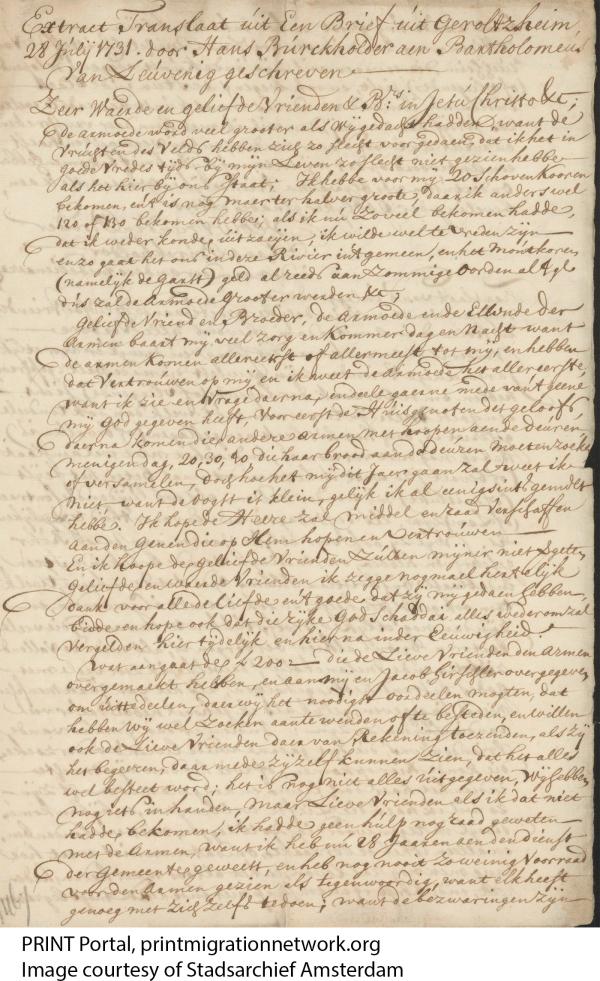 Extract Translaat úit Een Brief úit Geroltzheim,
28 Júlij 1731. door Hans Búrckholder aen Bartholomeús
Van Leúvenig geschreven
Zeer Waerde en geliefde Vrienden & Brs. in Jesú Christo &c;
de armoede word veel grooter als wij gedacht hadden, want de
Vrúchten des Velds hebben zich zo slecht voorgedaen, dat ik het in
goede Vredes tijds bij mijn Leven zo slecht niet gezien hebbe
als het hier bij ons staat; Ik hebbe voor mij 20 Schoven Kooren
bekomen, en 't is nog maer ter halver groote, daar ik anders wel
120 of 130 bekomen hebbe; als ik nú zo veel bekomen hadde,
dat ik weder konde úit zaeijen, ik wilde wel te vreden zijn
en zo gaat het ons in deze Rivier in 't gemeen, en het Moútkoren
(namelijk de Garst) geld al reeds aan zommige oorden al 4 gl
dús zal de Armoede Grooter werden &c;
Geliefde Vriend en Broeder, de Armoede ende Ellende der
Armen baart mij veel zorg en Kommer dag en Nacht want
de armen komen allereerst of allermeest tot mij, en hebben
dat Vertroúwen op mij, en ik weet de Armoede het aller eerste,
want ik zie en Vrage daerna, en deele gaerne mede van 't geene
mij God gegeven heeft, Voor eerst de Húisgenoten des geloofs,
daerna komen die andere armen met hoopen aen de deúren
menigen dag, 20, 30, 40 die haar brood aan de deúren moeten zoeken
of versamelen, doch hoe het mij dit Jaer gaan zal weet ik
niet, want de oogst is klein, gelijk ik al eenigsints gemelt
hebbe. Ik hope de Heere zal middel en raad Verschaffen
Aan den Genen die op Hem hopen en Vertroúwen
En ik hoope de geliefde Vrienden zúllen mijner niet Vergeten
Geliefde en waerde Vrienden ik zegge nogmael hertelijk
dank voor alle de liefde en 't goede dat zij mij gedaen hebben,
bidde en hope ook dat die rijke God Schaddai alles wederom zal
Vergelden hier tijdelijk en hier na in der Eeuwigheid!
Wat aangaat de ƒ 200:- die de Lieve Vrienden den Armen
overgemaekt hebben, en aan mij en Jacob Hirschler overgegeven
om uitte deelen, daer wij het noodigst oordeelen mogten, dat
hebben wij wel zoeken aan te wenden of te besteden, en willen
ook de Lieve Vrienden daer van Rekening toezenden, als zij
het begeeren, daar mede zij zelf kunnen zien, dat het alles
wel besteet word; het is nog niet alles úitgegeven, wij hebben
nog iets in handen, maar Lieve Vrienden als ik dat niet
hadde bekomen, ik hadde geen húlp nog raad geweten
met de Armen, want ik heb nú 28 Jaaren aen den dienst
der Gemeente geweest, en heb nog nooit zo weinig Voorraad
voor den Armen gezien als tegenwoordig, want elk heeft
genoeg met zich zelfs te doen; want de bezwaringen zijn
PRINT Portal, printmigrationnetwork.org
Image courtesy of Stadsarchief Amsterdam